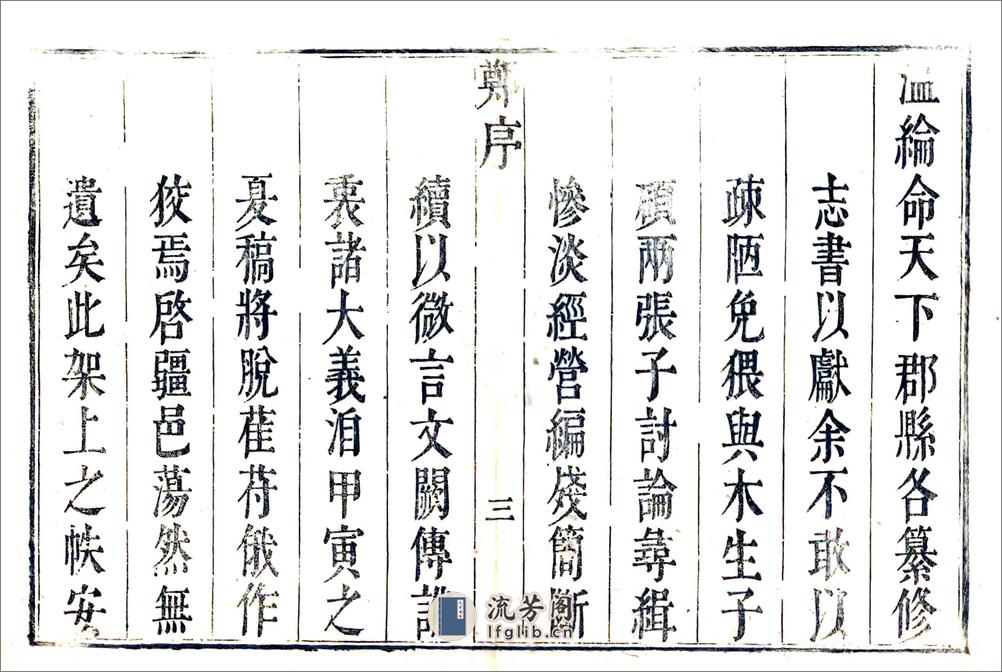 溫綸命天下郡縣各纂修
志書以獻余不敢以
疎陋免猥與木生子
碩兩張子討論尋緝
慘淡經營編殘簡斷
鄭序
三
續以微言文闕傳訛
衷諸大義洎甲寅之
夏稿將脫萑苻俄作
狡焉啓疆邑蕩然無
遺矣此架上之帙安
流芳阁
lfglib.cn